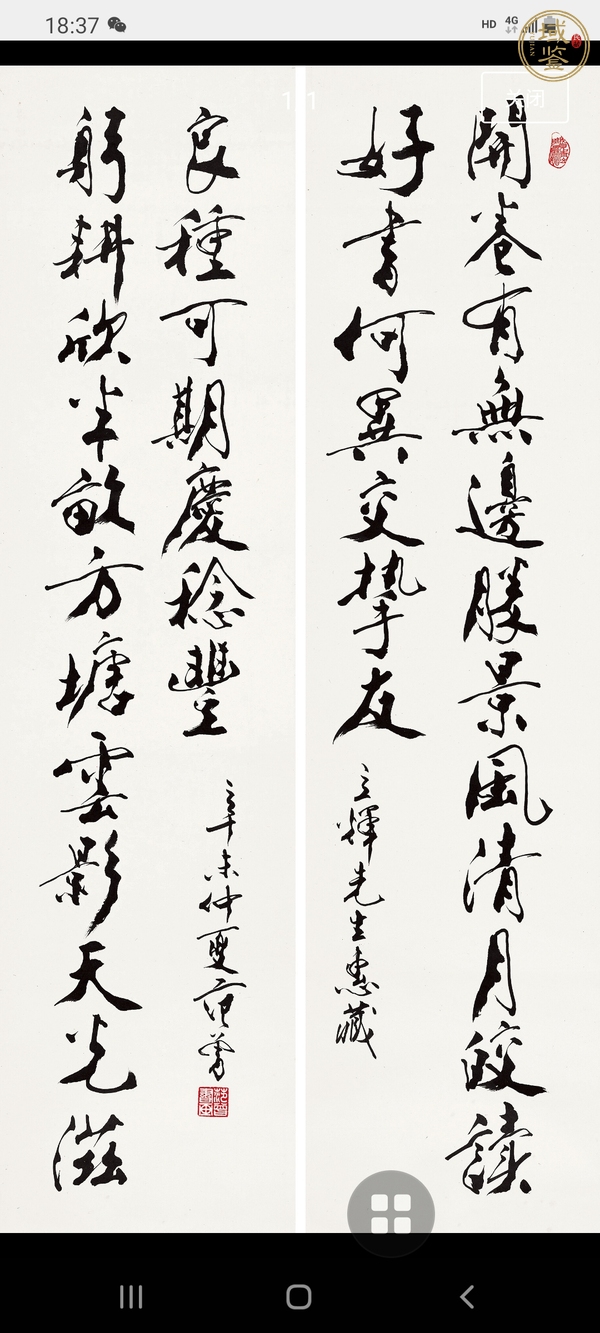 18:37
HD 4G
域鉴
1/1
关闭
開卷有無邊勝景風清月皎讀
好書何異交摯友
立輝先生惠藏
躬耕欣半畝方塘雲影天光滋
良種可期慶稔豐
辛未仲夏范曾